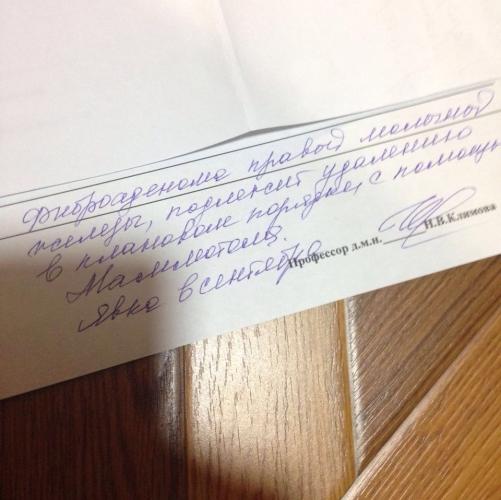 Фиброаденома правой молочной
железы, подлежит удалению
в плановом порядке, с помощью
Маммотома.
Явка в сентябре
Профессор д.м.н. Н.В.Климова